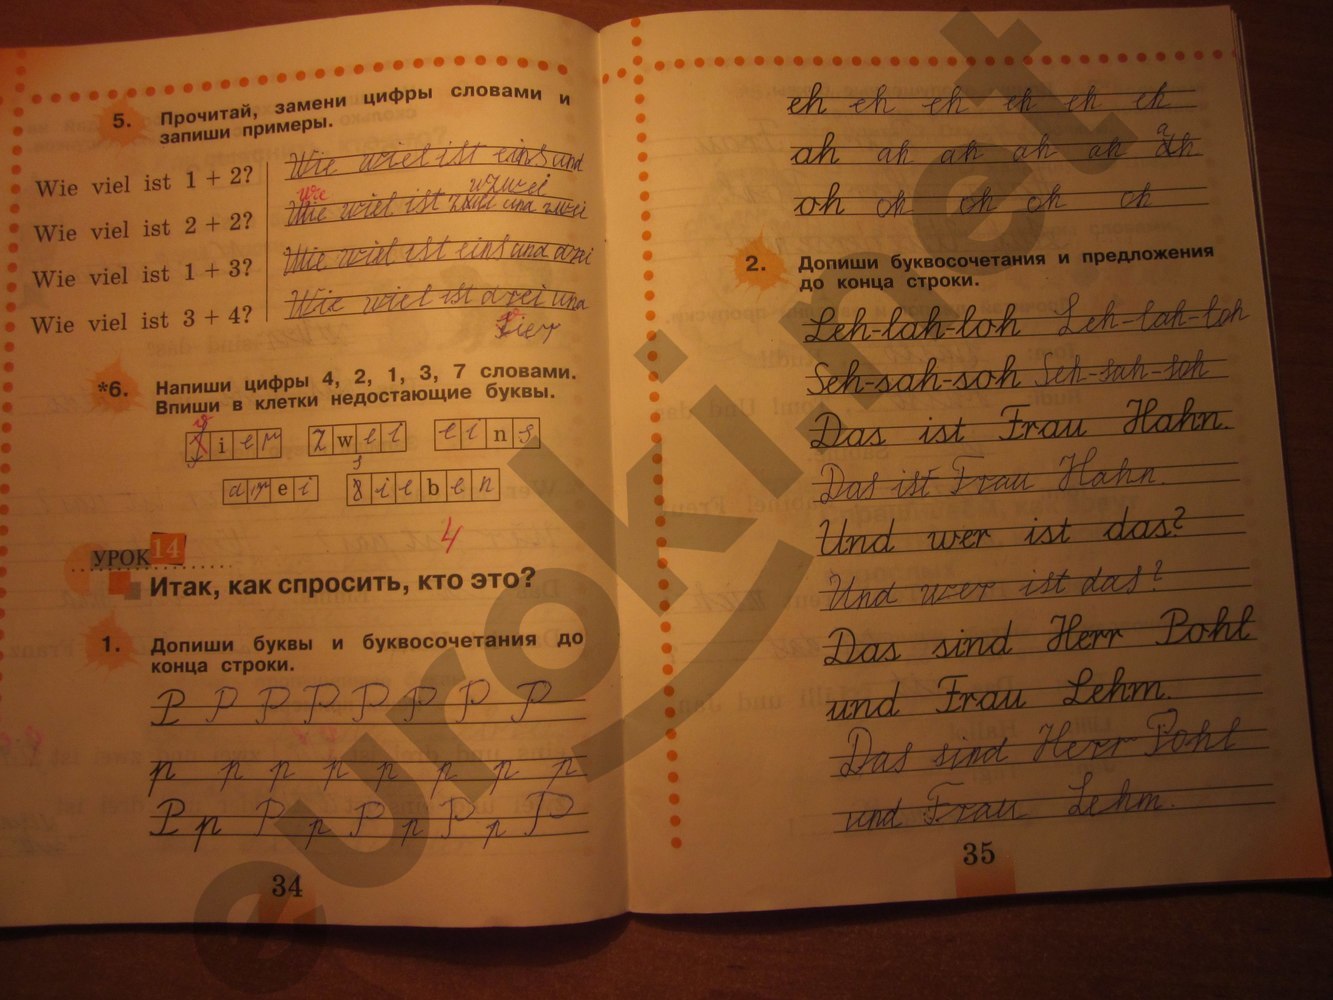 5. Прочитай, замени цифры словами и
запиши примеры.
Wie viel ist 1 + 2?
Wie viel ist eins und
zwei
Wie viel ist 2 + 2?
wie
Wie viel ist zwei und zwei
Wie viel ist 1 + 3?
Wie viel ist eins und drei
Wie viel ist 3 + 4?
Wie viel ist drei und
vier
*6. Напиши цифры 4, 2, 1, 3, 7 словами.
Впиши в клетки недостающие буквы.
v
ier zwei eins
drei sieben
4
УРОК 14
Итак, как спросить, кто это?
1. Допиши буквы и буквосочетания до
конца строки.
P P P P P P P P
p p p p p p p p
P p P p P p P p P
34
eh eh eh eh eh eh
ah ah ah ah ah ah
oh oh oh oh oh
2. Допиши буквосочетания и предложения
до конца строки.
Leh-lah-loh Leh-lah-loh
Seh-sah-soh Seh-sah-soh
Das ist Frau Hahn.
Das ist Frau Hahn.
Und wer ist das?
Und wer ist das?
Das sind Herr Pohl
und Frau Lehm.
Das sind Herr Pohl
und Frau Lehm.
35
euroki.net